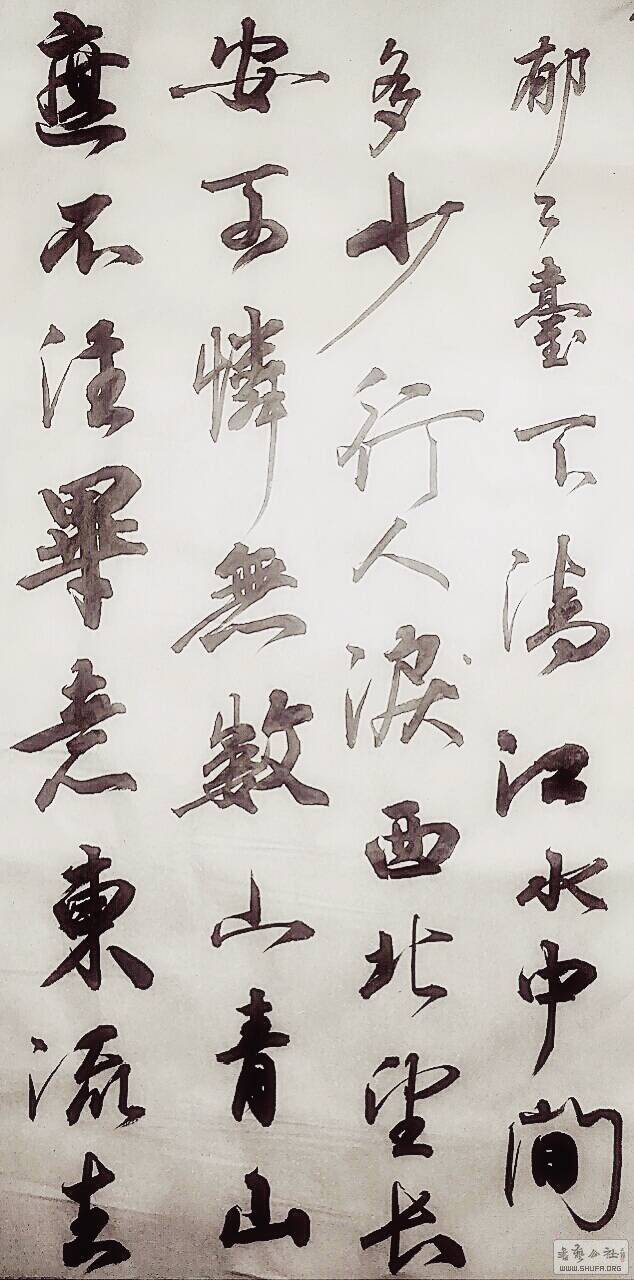 郁々臺下清江水中間
多少行人淚西北望长
安可憐無數山青山
遮不注畢竟東流去
書藝公社
WWW.SHUFA.ORG